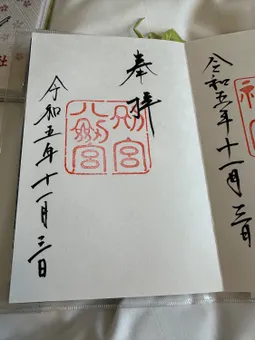 令和五年十一月三日
奉拝
別宮
八剱宮
令和五年十一月三日
社